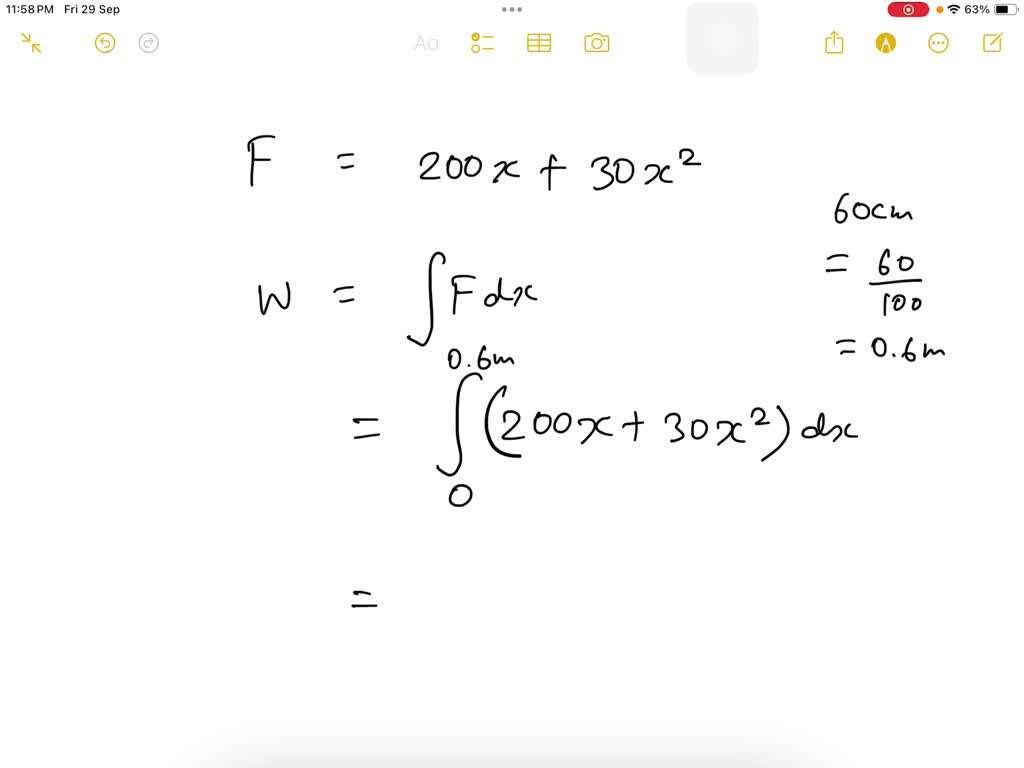 11:58 PM Fri 29 Sep 63%
Aa
F = 200x + 30x²
60cm
W = ∫F dx
= 60/100
= 0.6m
0.6m
= ∫(200x + 30x²) dx
0
=